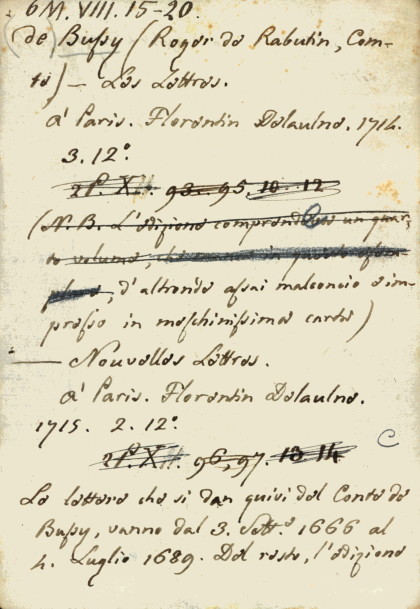 6M. VIII. 15-20.
de Bussy (Roger de Rabutin, Com-
te) — Les Lettres.
à Paris. Florentin Delaulne. 1714.
3. 12º.
21. X. 93. 95, 10. 12
(N. B. L'edizione comprende un quar-
to volume, che manca in questo esem-
plare, d'altronde assai malconcio e im-
presso in meschinissima carta)
— Nouvelles Lettres.
à Paris. Florentin Delaulne.
1715. 2. 12º.
C
21. X. 96, 97. 13 14
Le lettere che si dan quivi del Conte de
Bussy, vanno dal 3. Sett.e 1666 al
4. Luglio 1689. Del resto, l'edizione